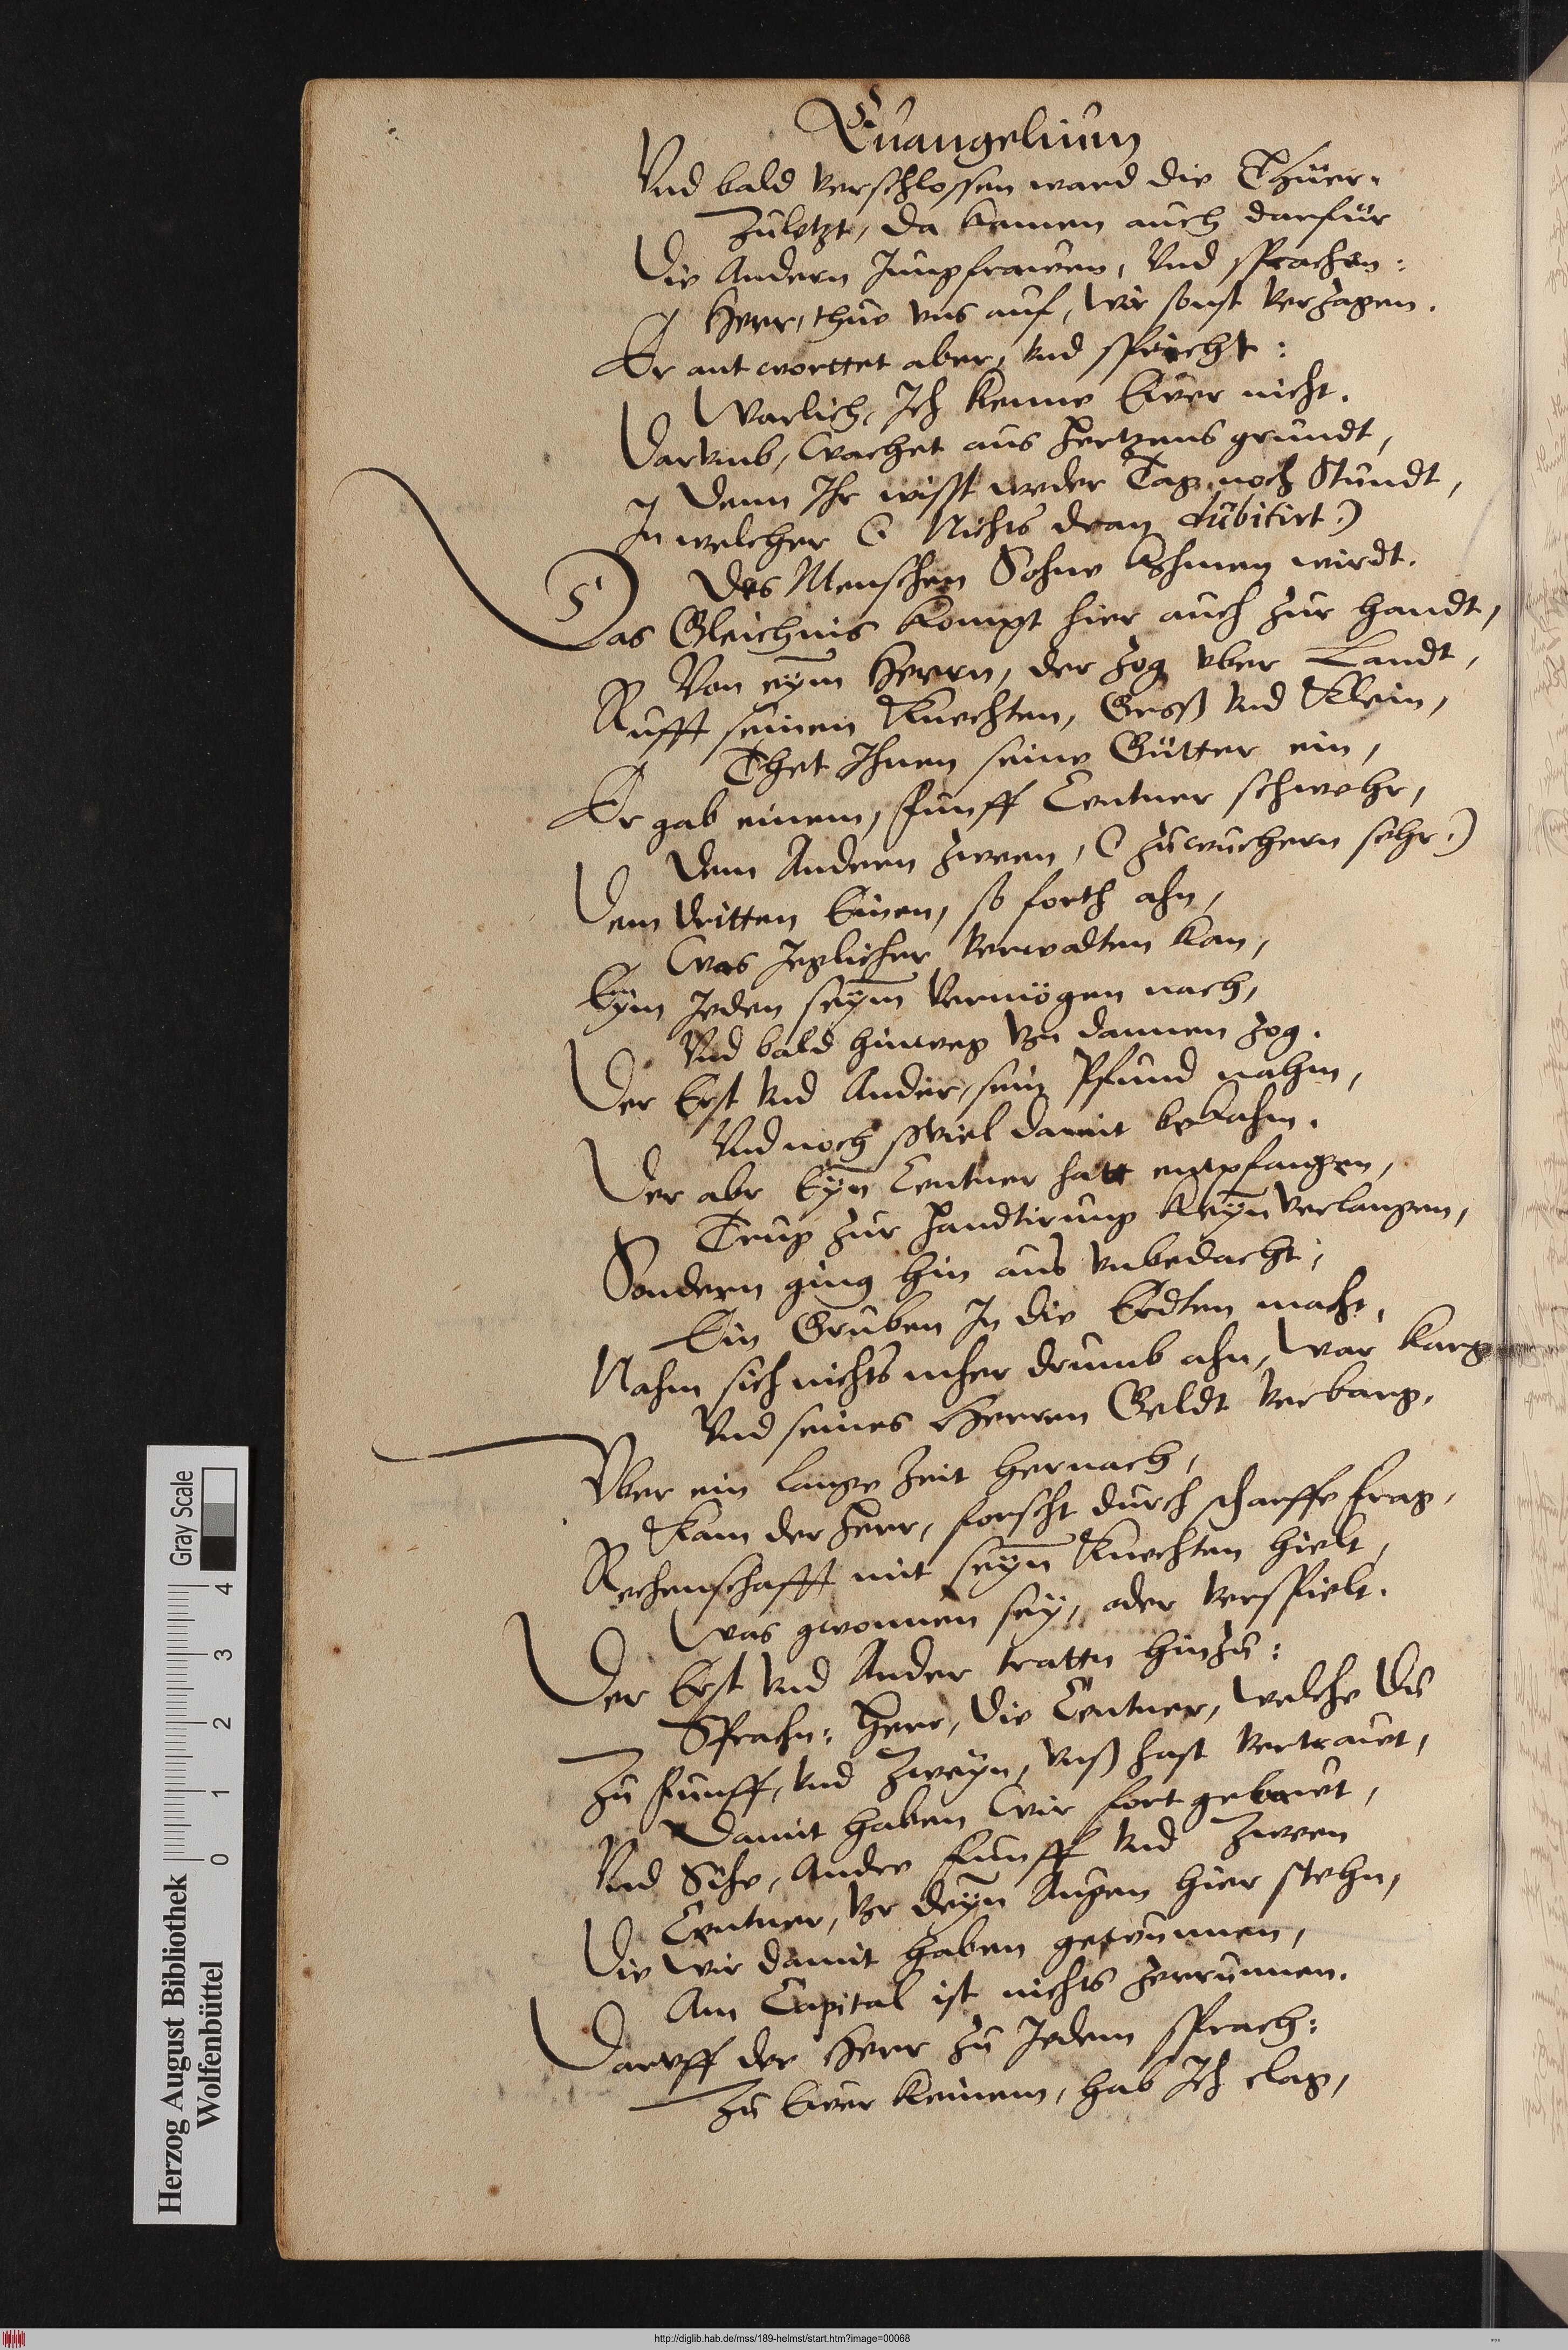 Euangelium
Vnd bald verschlossen ward die Thüer.
Zuletzt, da kamen auch darfür
Die Andern Jungfrawen, Vnd sprachen:
Herr, thue vns auf, Wir sonst verzagen.
Er antworttet aber, vnd spricht:
Warlich, Ich kenne Ewer nicht.
Darumb, Wachet aus Hertzens grundt,
Denn Ihr wisst weder Tag, noch Stundt,
In welcher (: Nichts dran dubitirt :)
Des Menschen Sohne kohmen wirdt.
Das Gleichnis kompt hier auch zur handt,
Von eÿm Herrn, der zog vber Landt,
Rufft seinen Knechten, Groß vnd Klein,
Thet Ihnen seine Gütter ein,
Er gab einem, funff Centner schwehr,
Dem Andern zween, (: zuwuchern sehr :)
Dem dritten Einen, so forth ahn,
Was Jeglicher verwalten kan,
Eÿm Jeden seÿm vermögen nach,
Vnd bald hinweg von dannen zog.
Der Erst vnd Ander, sein Pfund nahm,
Vnd noch so viel damit bekahm.
Der abr Eÿn Centner hatt entpfangen,
Trug zur Handtirung keÿn verlangen,
Sondern ging hin aus vnbedacht,
Ein Gruben In die Erdten macht,
Nahm sich nichts mher drumb ahn, War karg
Vnd seines Herren Geldt verbarg.
Vber ein lange Zeit hernach,
Kam der Herr, forscht durch scharffe frag,
Rechenschafft mit seÿn Knechten hielt,
Was gwonnen seÿ, oder verspielt.
Der Erst vnd Ander trattn hinzu:
Sprachn: Herr, die Centner, welche Du
Zu funff, vnd Zweÿn, vnß hast vertrauet,
Damit haben Wir fort gebawt,
Vnd Sihe, Andre funff vnd Zween
Centner, vor deÿn Augen hier stehn,
Die Wir damit haben gewunnen,
Am Capital ist nichts zerrunnen.
Darvff der Herr zu Jedem sprach:
Zu Ewer keinem, hab Ich clag,
Herzog August Bibliothek
Wolfenbüttel
Gray Scale
0 1 2 3 4
http://diglib.hab.de/mss/189-helmst/start.htm?image=00068